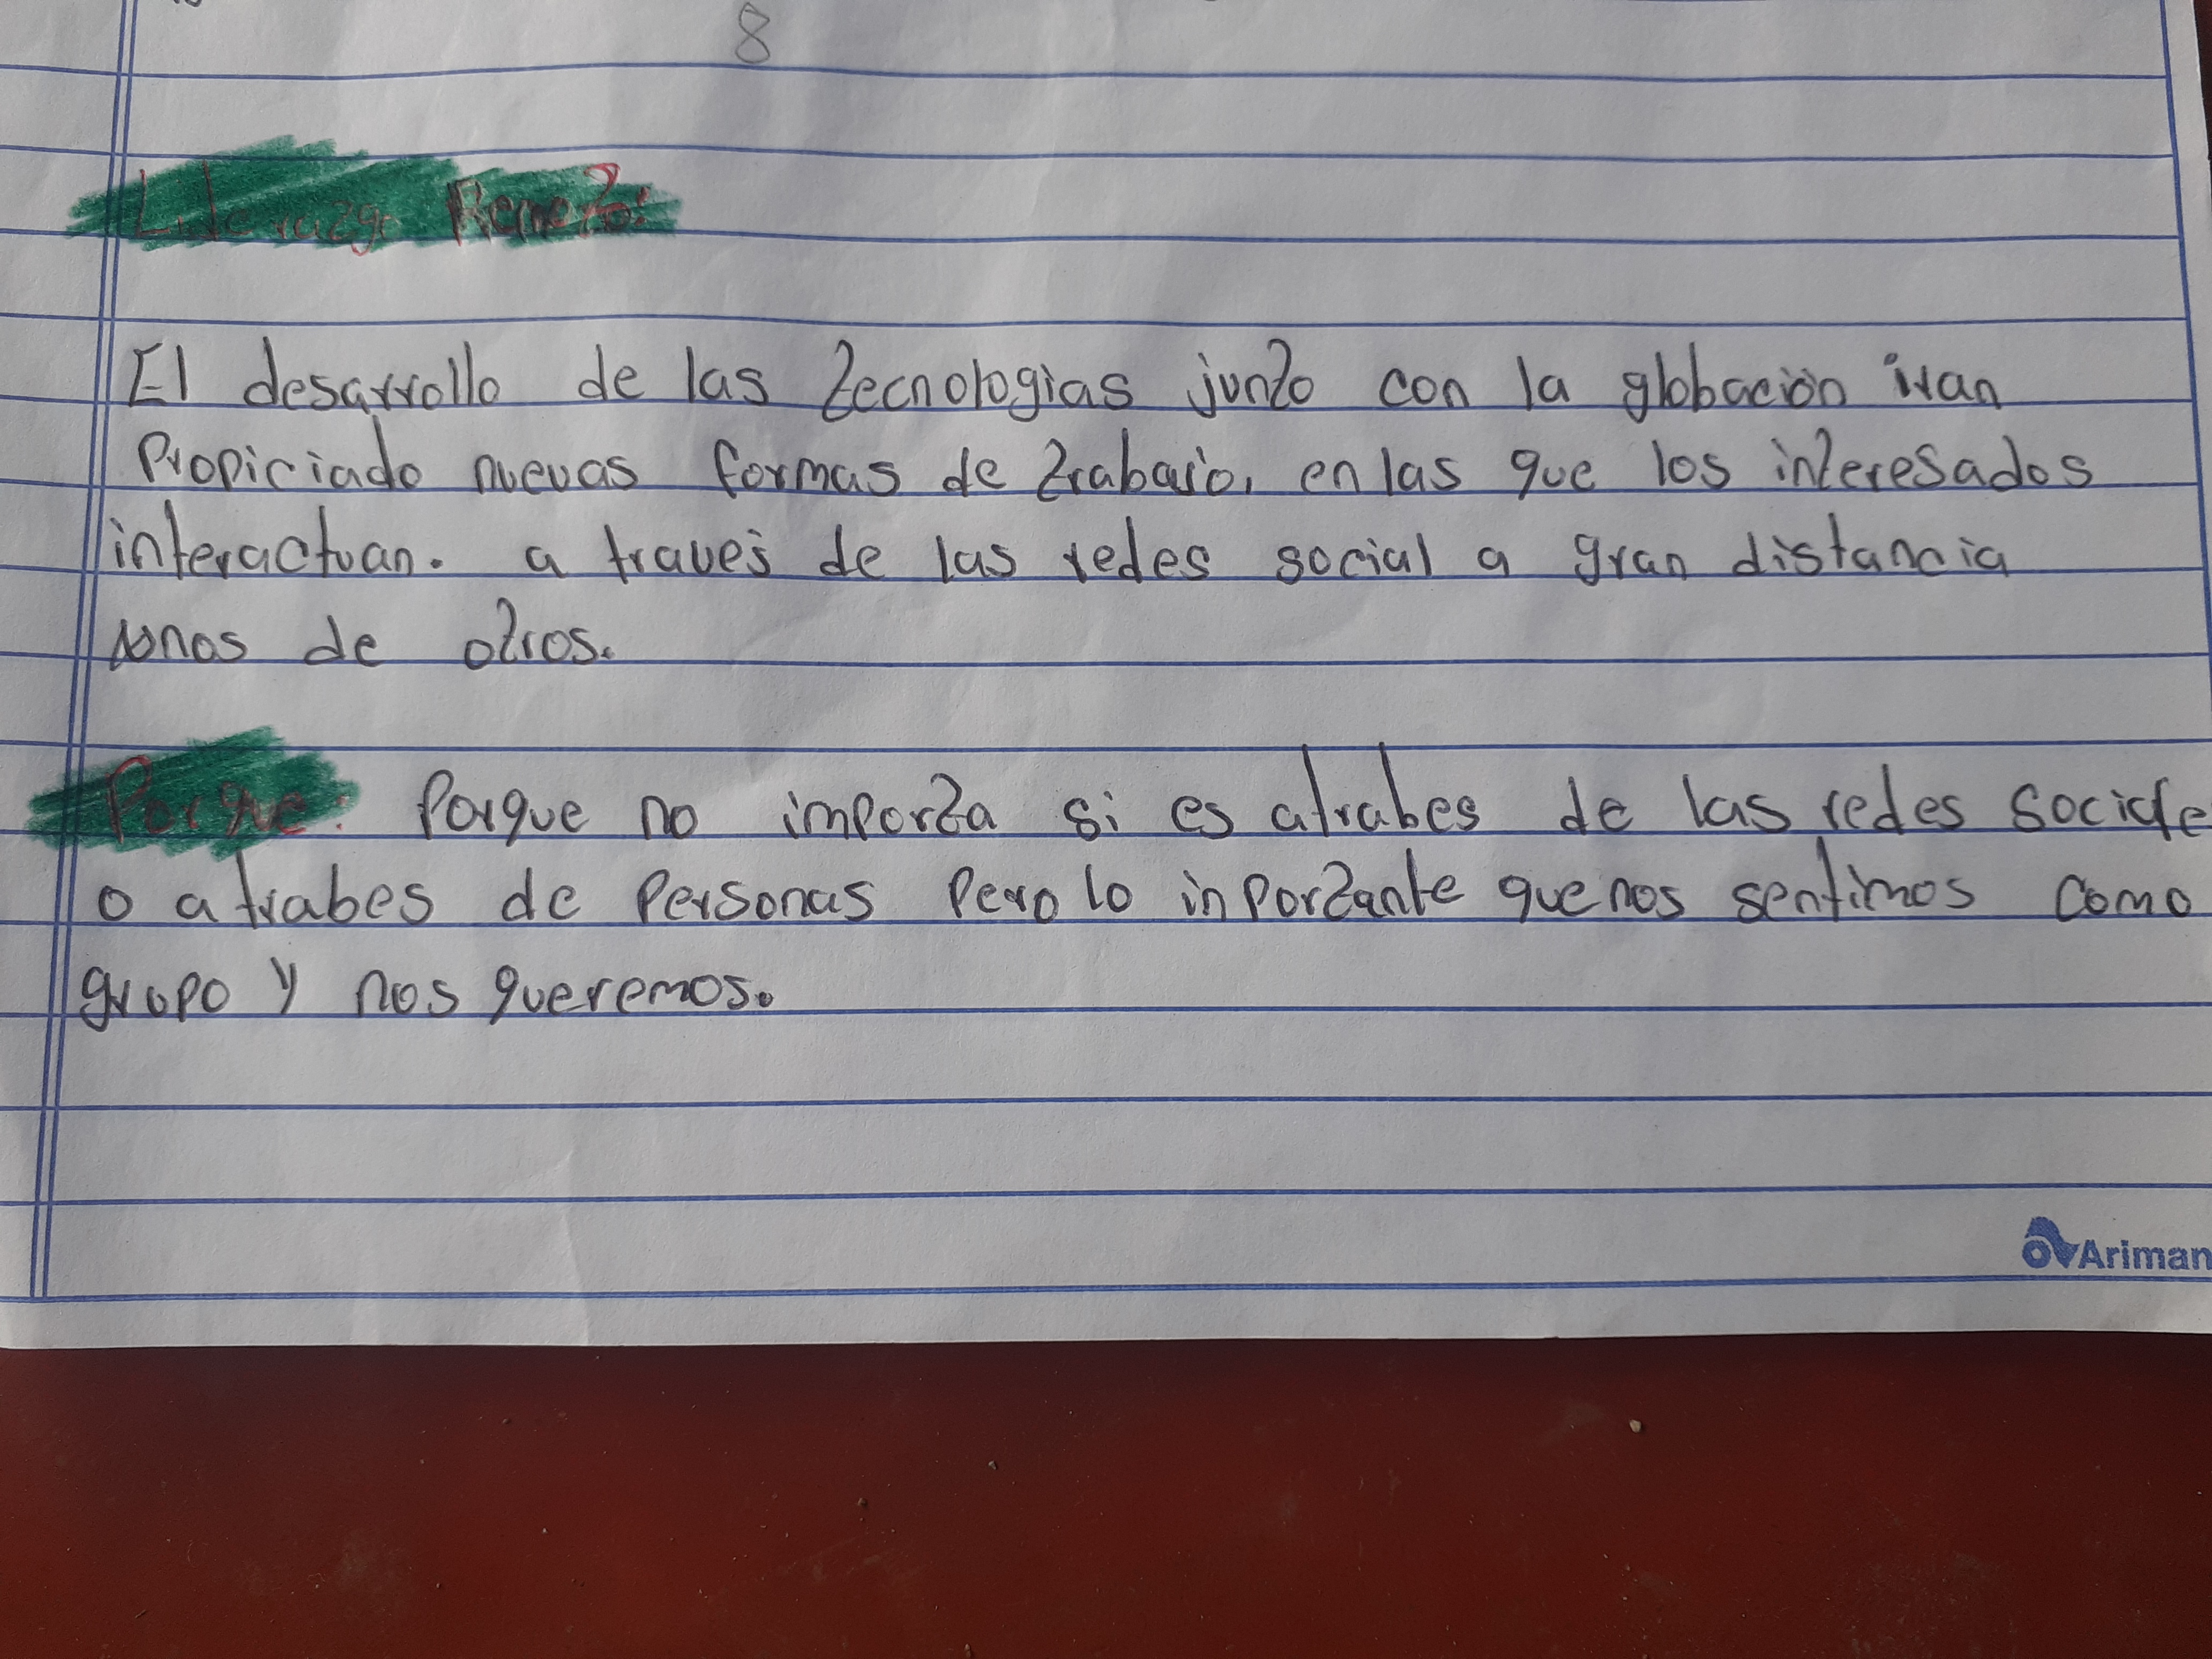 8
Liderazgo Remoto:
El desarrollo de las tecnologias junto con la globación ivan
Propiciado nuevas formas de trabajo, en las que los interesados
interactuan. a través de las redes social a gran distancia
unos de otros.
Porque: Porque no importa si es atrabes de las redes
o atrabes de Personas Pero lo inportante que nos sentimos como
grupo y nos queremos.
Ariman